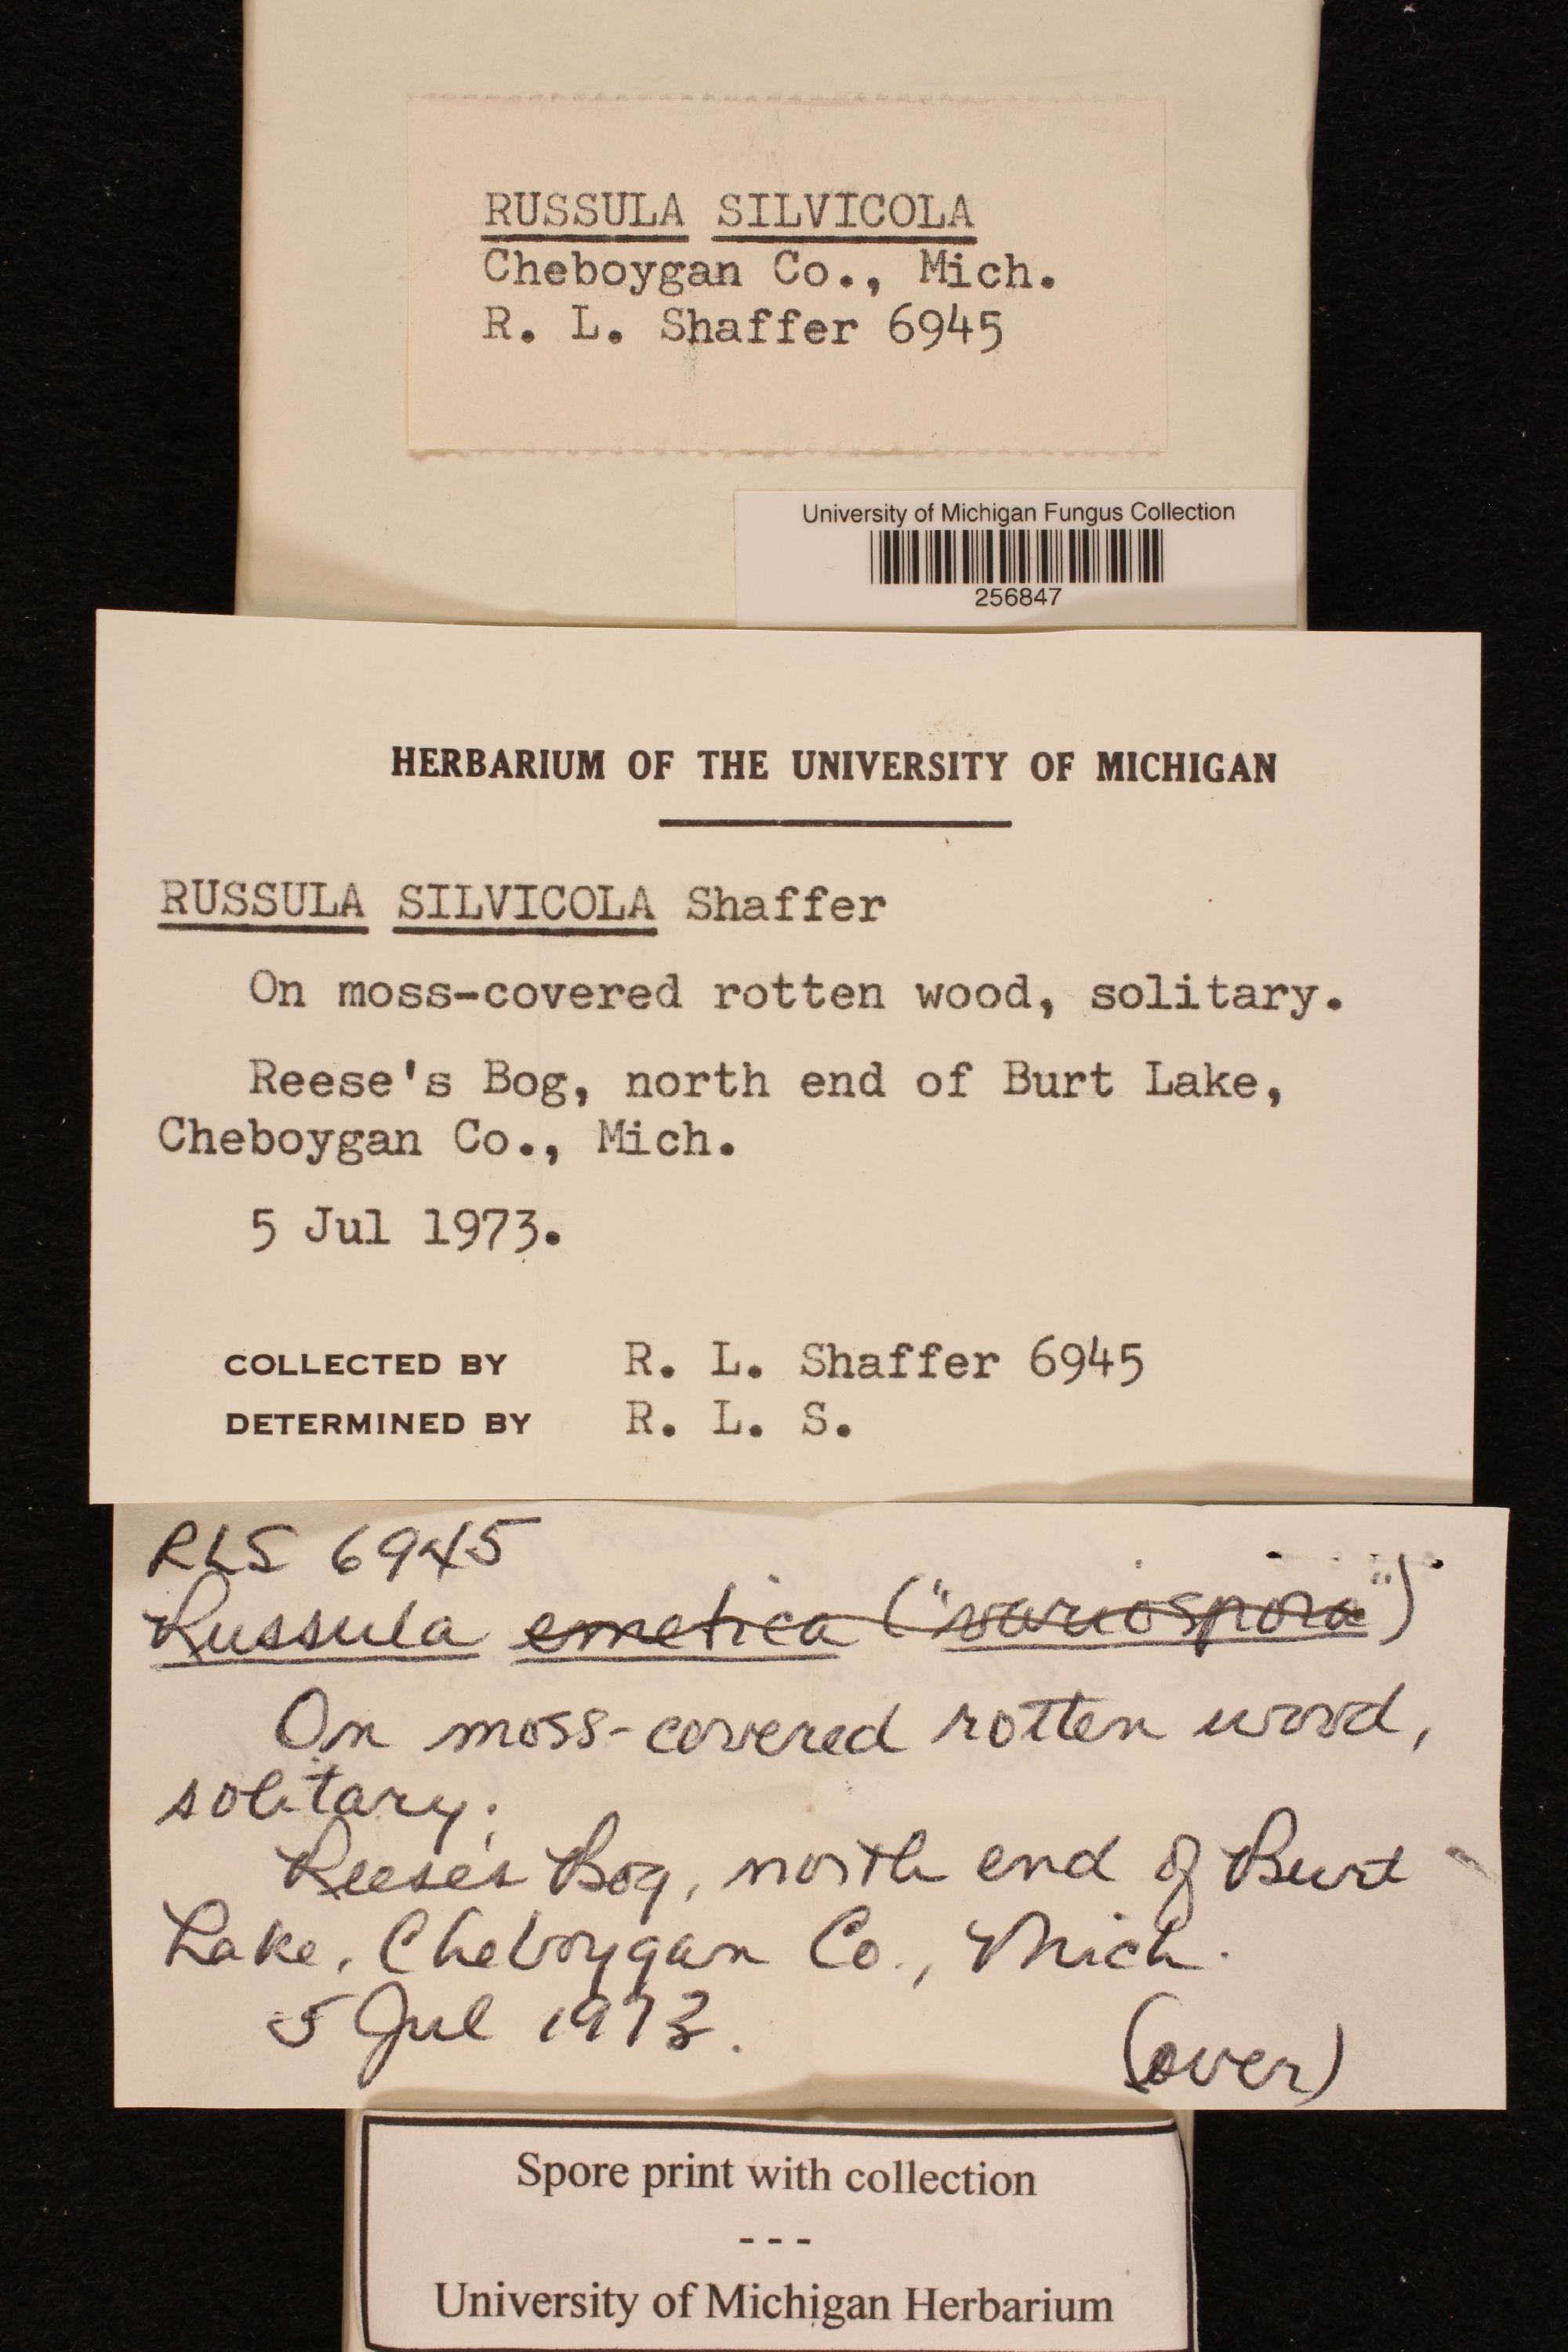 RUSSULA SILVICOLA
Cheboygan Co., Mich.
R. L. Shaffer 6945
University of Michigan Fungus Collection
256847
HERBARIUM OF THE UNIVERSITY OF MICHIGAN
RUSSULA SILVICOLA Shaffer
On moss-covered rotten wood, solitary.
Reese's Bog, north end of Burt Lake,
Cheboygan Co., Mich.
5 Jul 1973.
COLLECTED BY R. L. Shaffer 6945
DETERMINED BY R. L. S.
RLS 6945
Russula emetica ("variospora")
On moss-covered rotten wood,
solitary.
Reese's Bog, north end of Burt
Lake, Cheboygan Co., Mich.
5 Jul 1973.
(over)
Spore print with collection
---
University of Michigan Herbarium